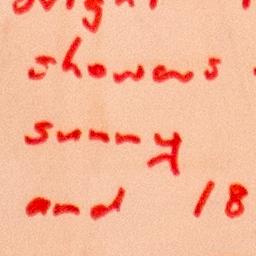 showers
sunny
and 18